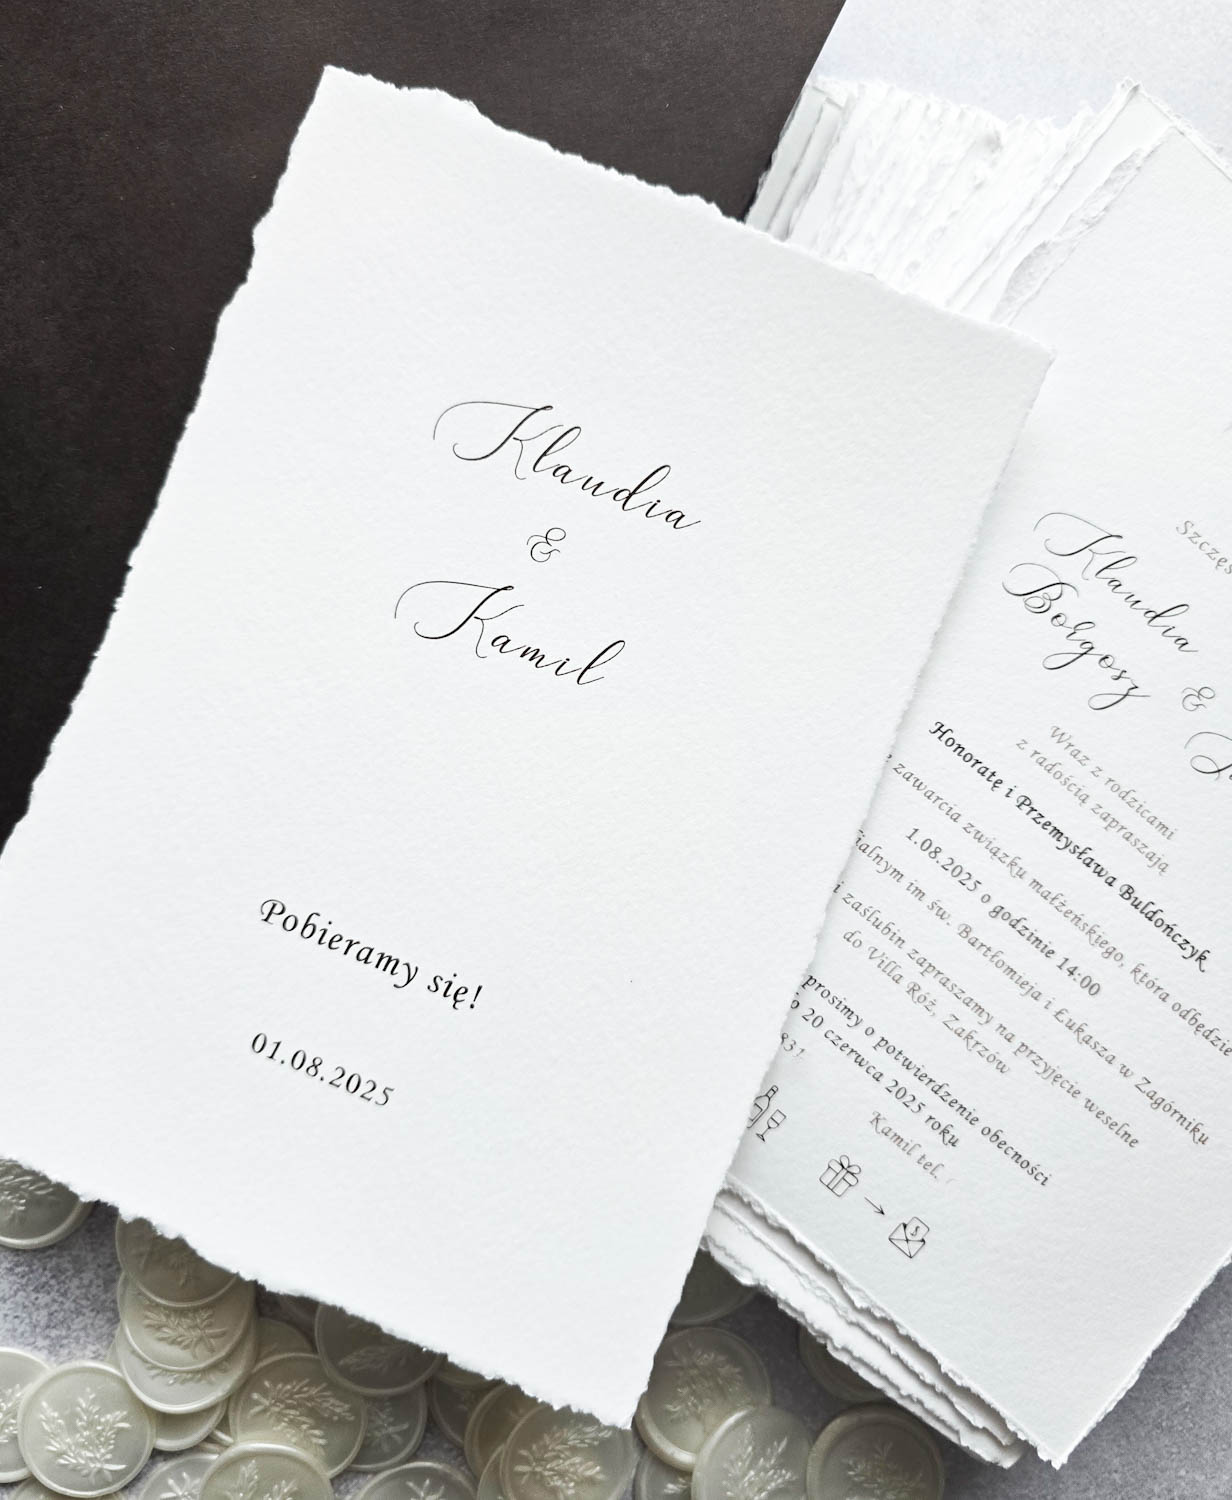 Klaudia
&
Kamil
Pobieramy się!
01.08.2025
Klaudia
Bołgosz
&
Wraz z rodzicami
z radością zapraszają
Honoratę i Przemysława Buldończyk
zawarcia związku małżeńskiego, która odbędzie
1.08.2025 o godzinie 14:00
im św. Bartłomieja i Łukasza w Zagórniku
i zaślubin zapraszamy na przyjęcie weselne
do Villa Róż, Zakrzów
prosimy o potwierdzenie obecności
20 czerwca 2025 roku
831
Kamil tel.
$